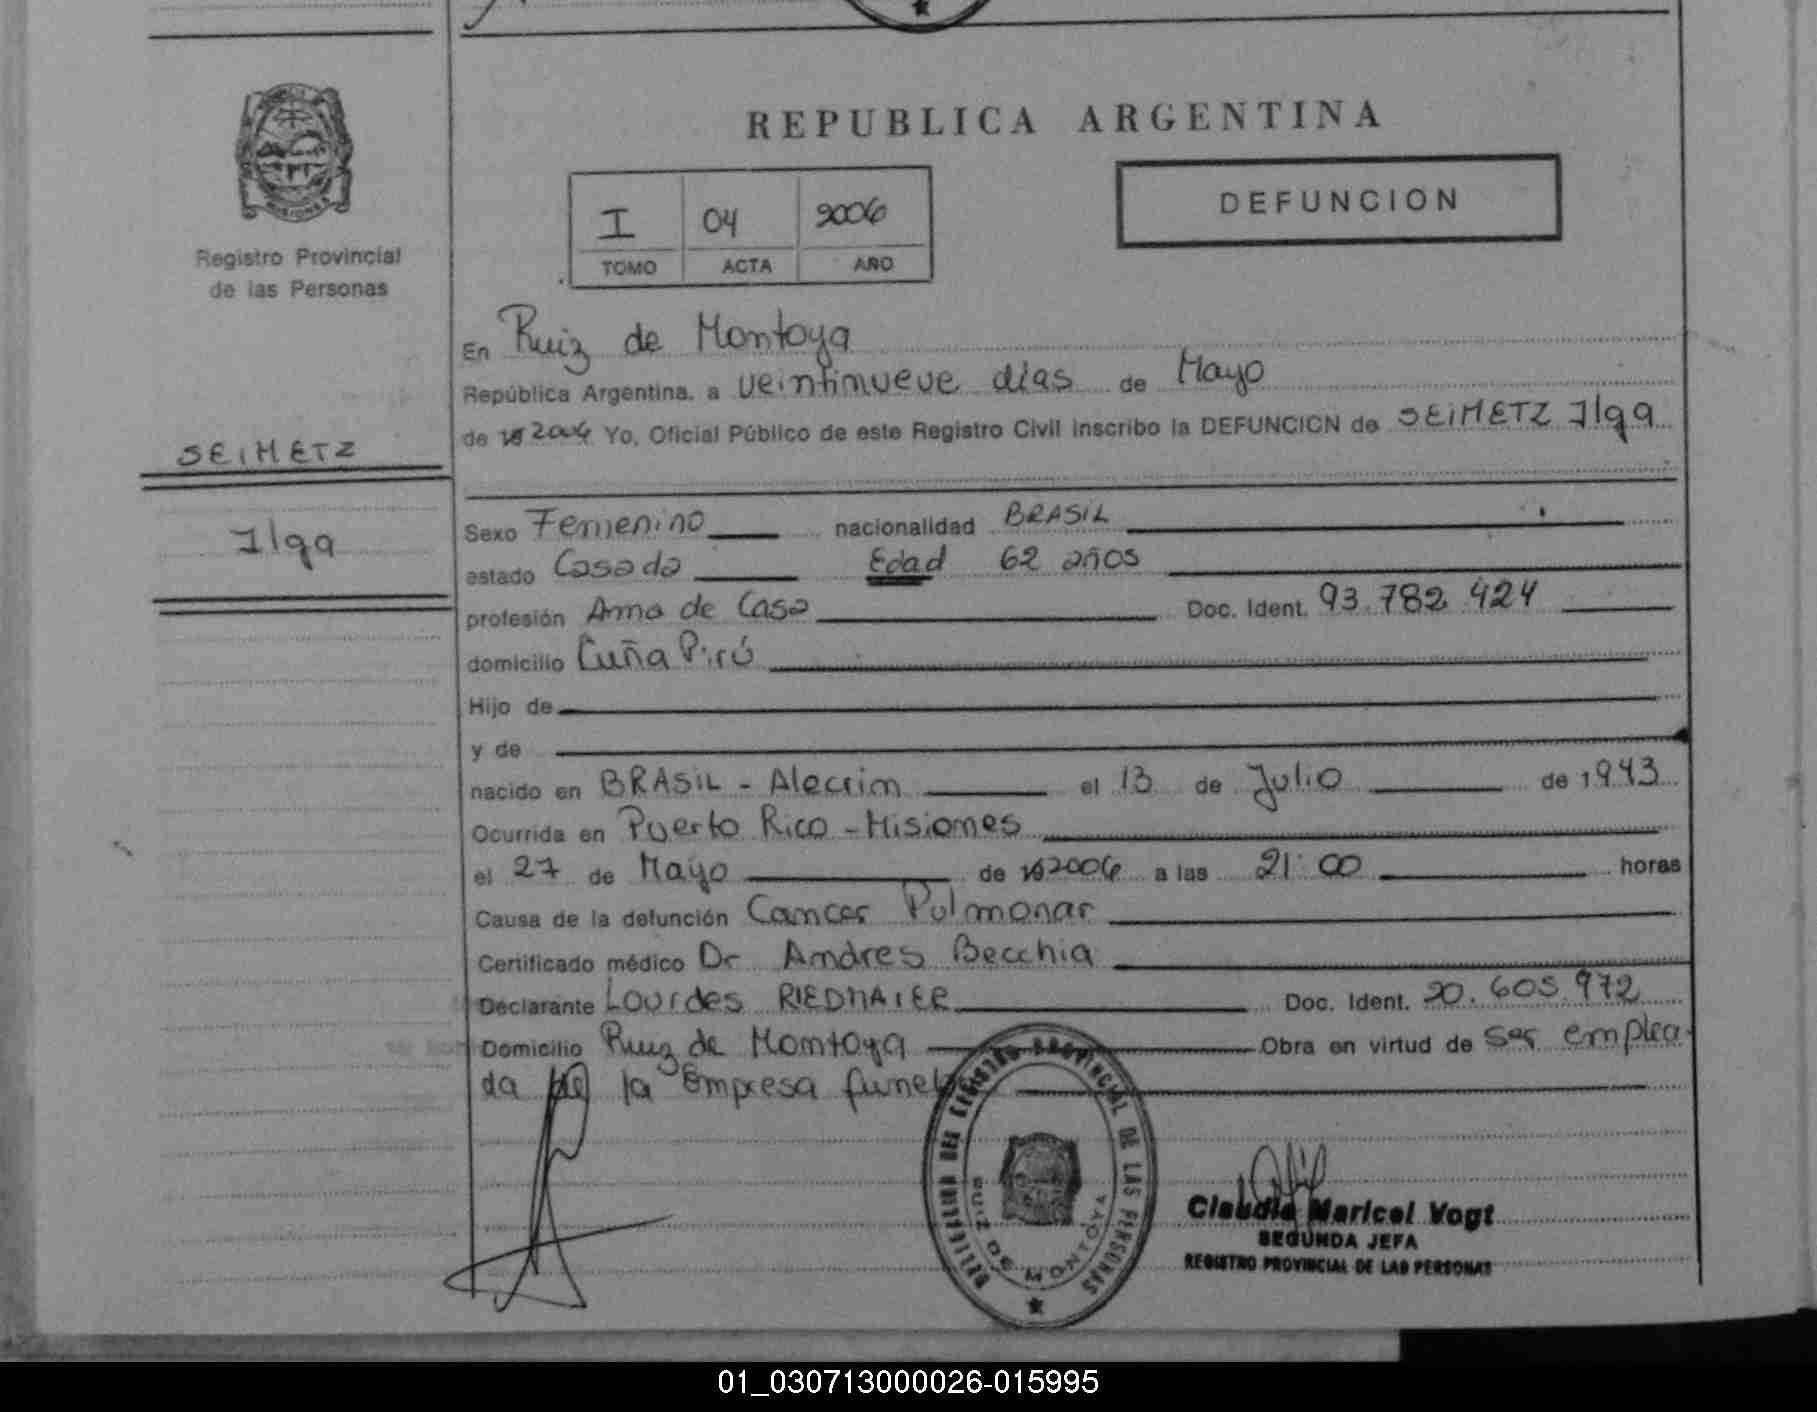 REPUBLICA ARGENTINA
MISIONES
Registro Provincial
de las Personas
I 04 2006
TOMO ACTA AÑO
DEFUNCION
En Ruiz de Montoya
República Argentina, a veintinueve dias de Mayo
de 2006 Yo, Oficial Público de este Registro Civil inscribo la DEFUNCION de SEIMETZ Ilga
SEIMETZ
Ilga
Sexo Femenino nacionalidad BRASIL
estado Casada Edad 62 años
profesión Ama de Casa Doc. Ident. 93.782.424
domicilio Cuña Pirú
Hijo de
y de
nacido en BRASIL - Alecrim el 13 de Julio de 1943
Ocurrida en Puerto Rico - Misiones
el 27 de Mayo de 2006 a las 21:00 horas
Causa de la defunción Cancer Pulmonar
Certificado médico Dr Andres Becchia
Declarante Lourdes RIEDMAIER Doc. Ident. 20.605.972
Domicilio Ruiz de Montoya Obra en virtud de ser emplea-
da de la Empresa
DEL REGISTRO PROVINCIAL DE LAS PERSONAS
RUIZ DE MONTOYA
Claudia Maricel Vogt
SEGUNDA JEFA
REGISTRO PROVINCIAL DE LAS PERSONAS
01_030713000026-015995